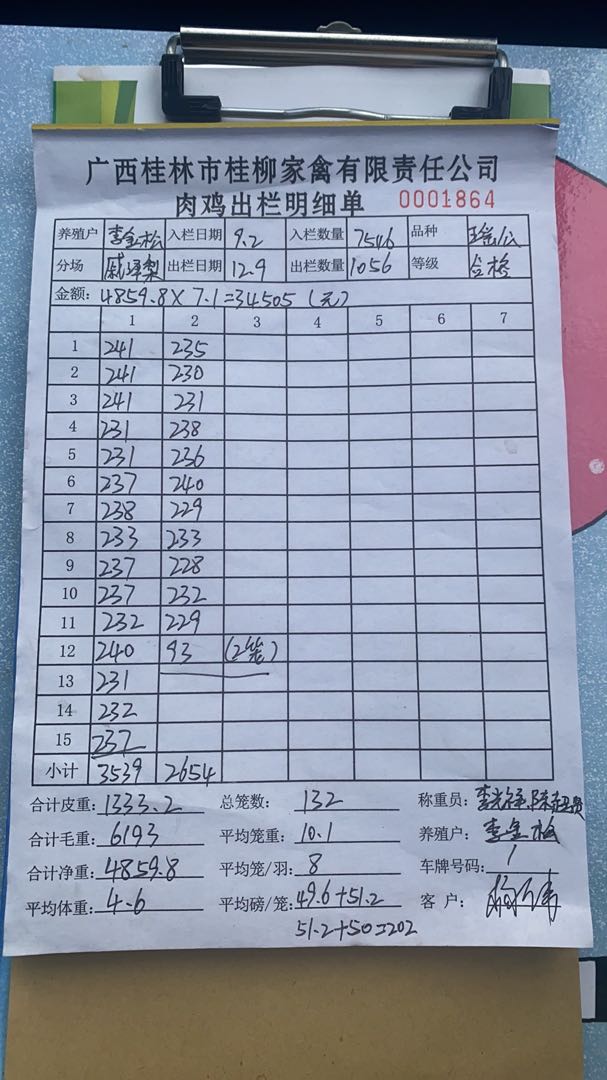 广西桂林市桂柳家禽有限责任公司
肉鸡出栏明细单 0001864
养殖户 李金松 入栏日期 9.2 入栏数量 7546 品种
分场 出栏日期 12.9 出栏数量 1056 等级 合格
金额: 4859.8×7.1=34505(元)
1 2 3 4 5 6 7
1 241 235
2 241 230
3 241 231
4 231 238
5 231 236
6 237 240
7 238 229
8 233 233
9 237 228
10 237 232
11 232 229
12 240 93 (2笼)
13 231
14 232
15 237
小计 3539 2654
合计皮重: 1333.2 总笼数: 132 称重员:
合计毛重: 6193 平均笼重: 10.1 养殖户: 李金松
合计净重: 4859.8 平均笼/羽: 8 车牌号码: 1
平均体重: 4.6 平均磅/笼: 49.6+51.2 客户:
51.2+50=202